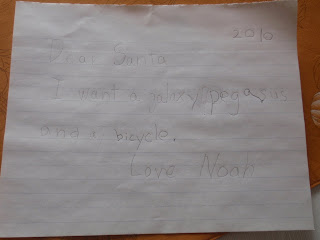 2010
Dear Santa
I want a galaxy pegasus
and a bicycle.
Love Noah